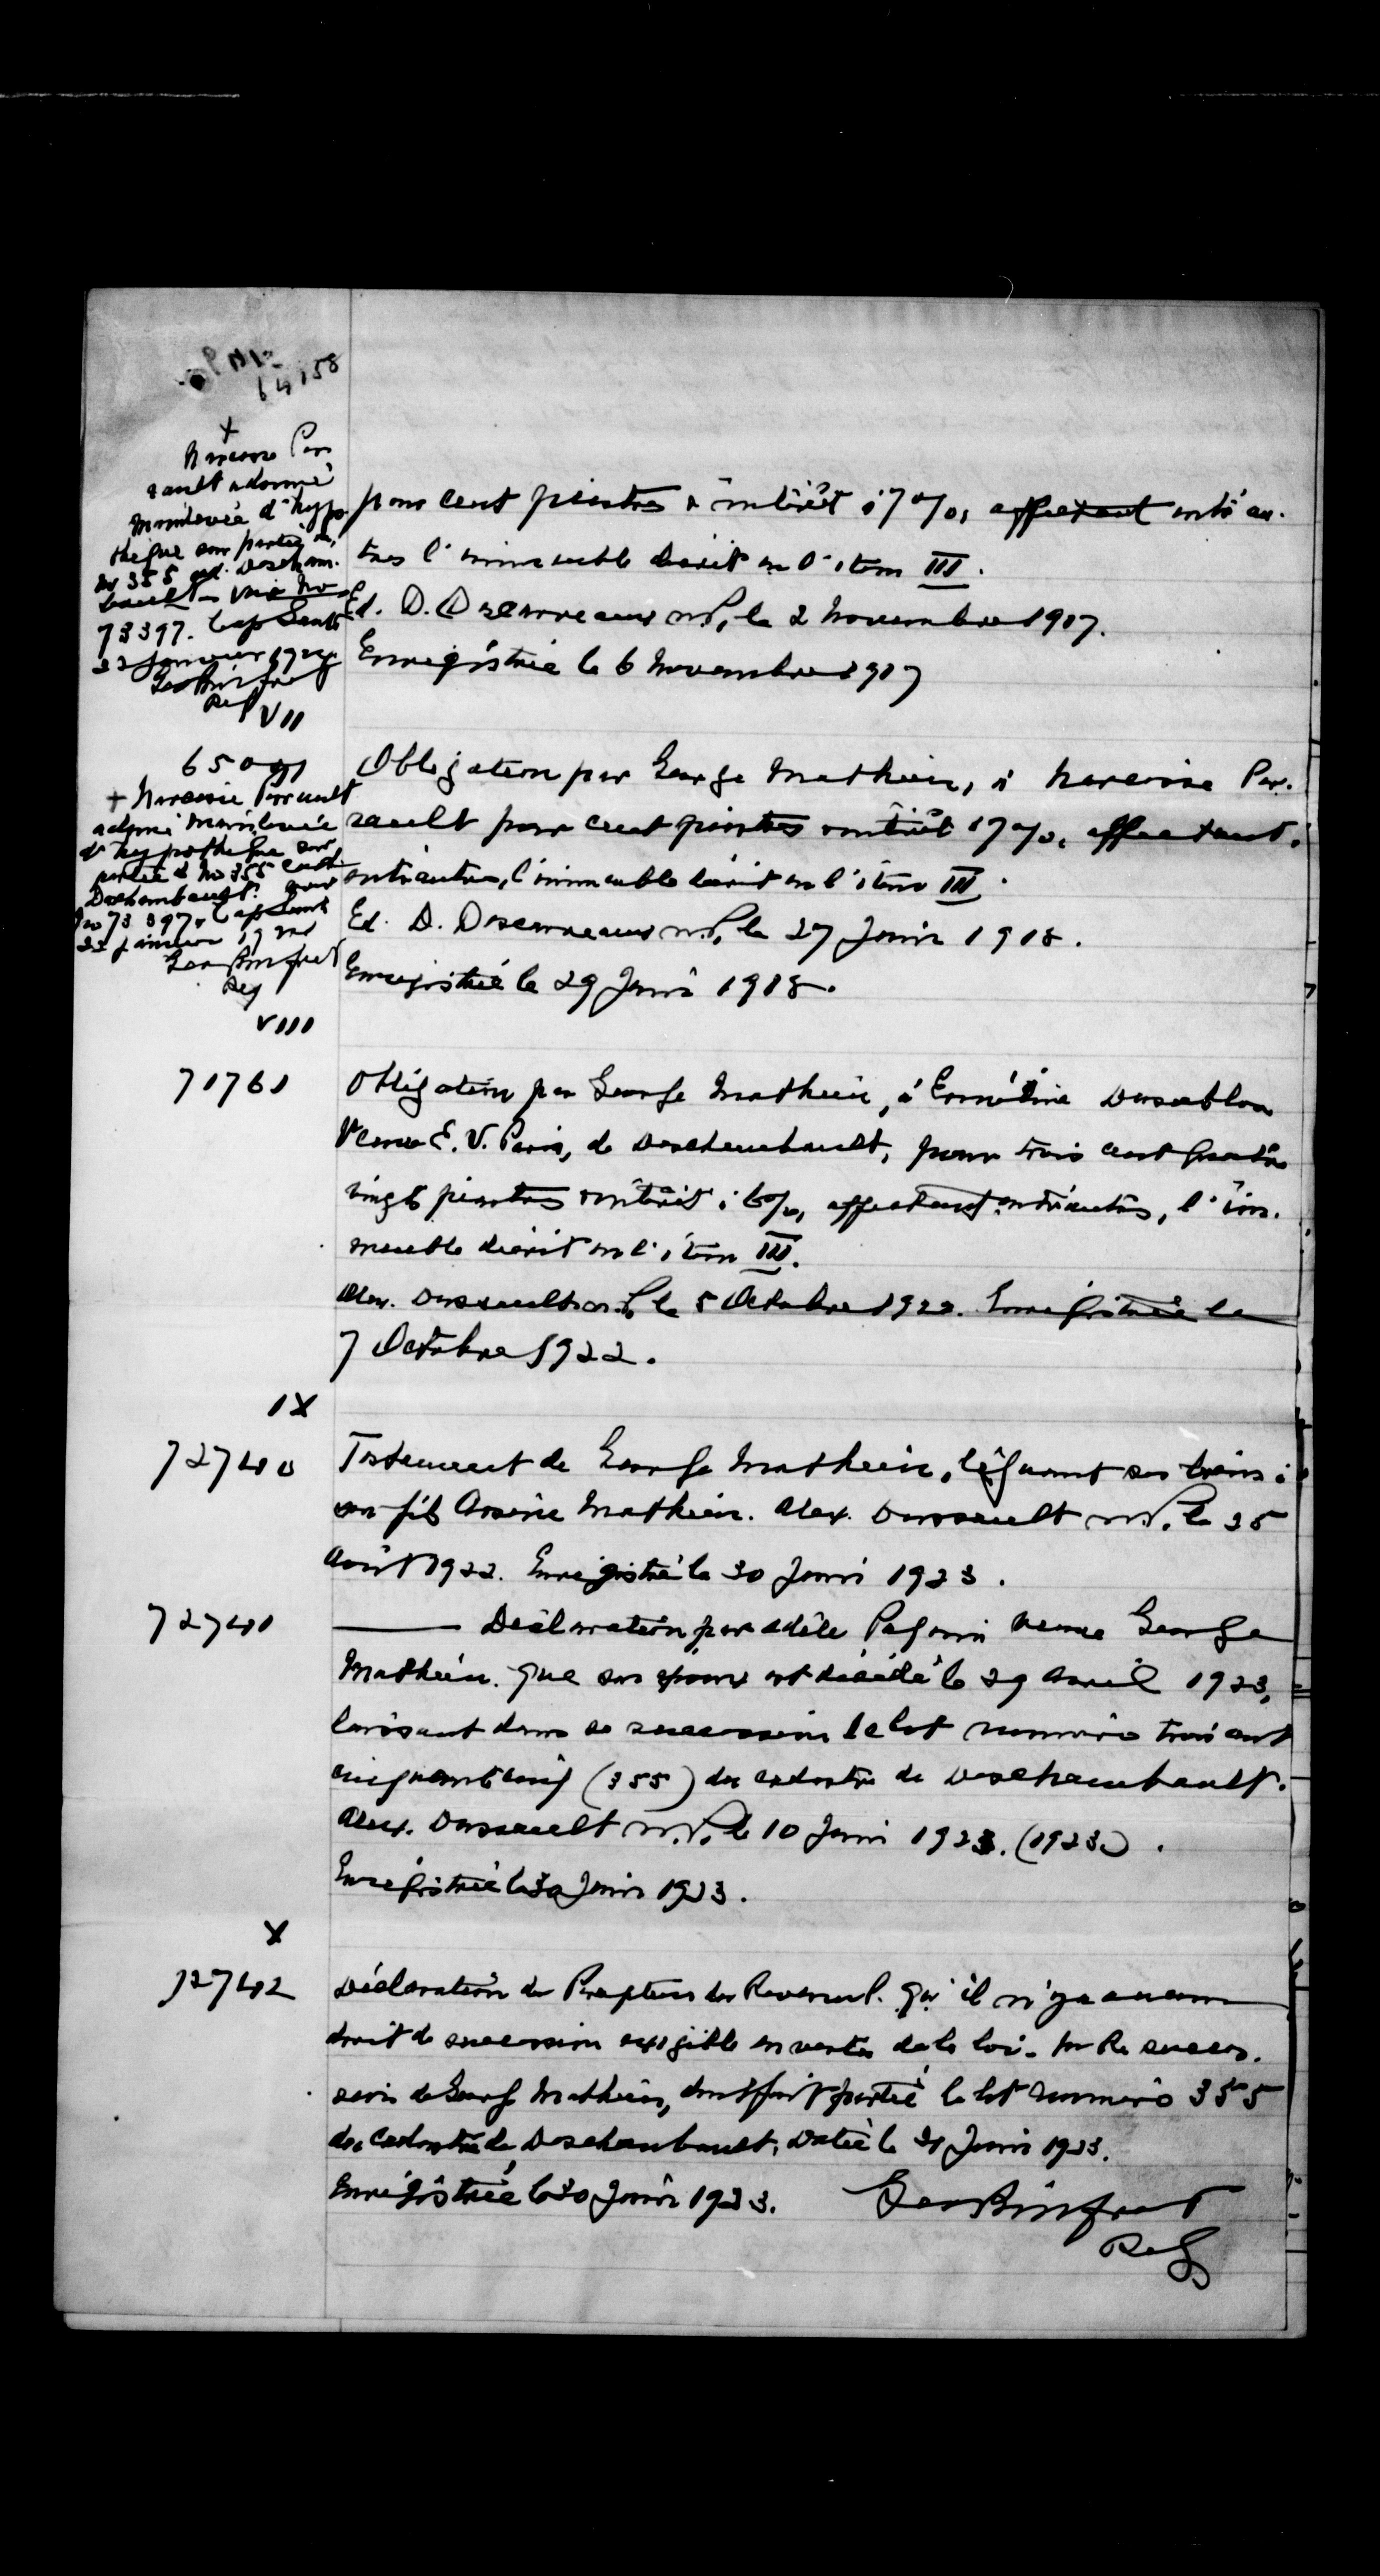 64158
+
Narcisse Per
rault a donné
mainlevée d'hypo
thèque sur partie du
No 355 cad. Descham.
bault - Vide No
73397. Cap Santé
22 Janvier 1924
Reg
pour cent piastres & intérêt à 7 %, affectant entr'au.
tres l'immeuble décrit en l'item III.
Ed. D. N.P. le 2 Novembre 1917.
Enregistrée le 6 Novembre 1917
VII
+ Narcisse Perrault
a donné mainlevée
d'hypothèque sur
partie du No 355 cad.
Deschambault.
No 73397. Cap Santé
22 Janvier
Reg
Obligation par George Mathieu, à Narcisse Per.
rault pour cent piastres & intérêt à 7 %, affectant,
entr'autres, l'immeuble décrit en l'item III.
Ed. D. N.P. le 27 Juin 1918.
Enregistrée le 29 Juin 1918.
VIII
71761
Obligation par George Mathieu, à
Veuve E. V. Paris, de Deschambault, pour trois cent quatre
vingts piastres & intérêt à 6%, affectant entr'autres, l'im.
meuble décrit en l'item III.
Alex. Dussault N.P. le 5 Octobre 1922. Enregistrée le
7 Octobre 1922.
IX
72740
Testament de George Mathieu, léguant ses biens à
son fils Arsène Mathieu. Alex. Dussault N.P. le 25
Août 1922. Enregistré le 30 Juin 1923.
72741
Déclaration par Adèle Paquin veuve George
Mathieu. que son époux est décédé le 29 Avril 1923,
laissant dans sa succession le lot numéro trois cent
cinquante cinq (355) du cadastre de Deschambault.
Alex. Dussault N.P. le 10 Juin 1923. (1923)
Enregistrée le 30 Juin 1923.
X
72742
Déclaration du Percepteur du Revenu P. qu'il n'y a aucun
droit de succession exigible en vertu de la loi. sur la succes.
sion de George Mathieu, dont fait partie le lot numéro 355
du cadastre de Deschambault. Datée le 21 Juin 1923.
Enregistrée le 30 Juin 1923.
Reg